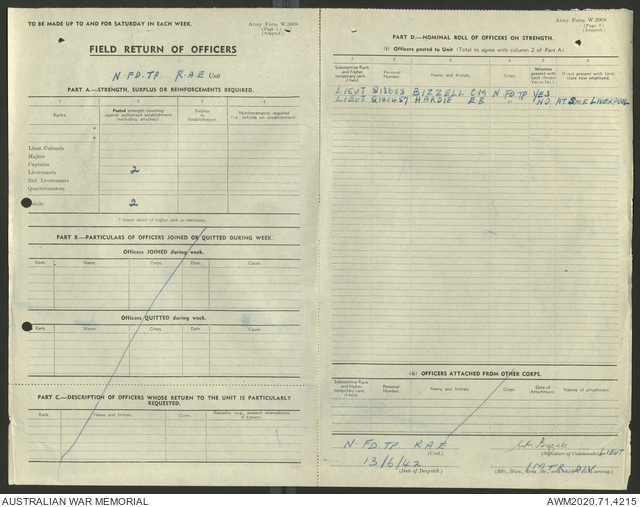 TO BE MADE UP TO AND FOR SATURDAY IN EACH WEEK.
Army Form W.3008
(Page 1.)
(Adapted.)
FIELD RETURN OF OFFICERS
N. FD. TP. R.A.E Unit
PART A.—STRENGTH, SURPLUS OR REINFORCEMENTS REQUIRED.
1 2 3 4
Ranks.
Posted strength counting against authorized establishment (excluding attached).
Surplus to Establishment.
Reinforcements required (i.e., deficits on establishment)
Lieut-Colonels
Majors
Captains
Lieutenants 2
2nd Lieutenants
Quartermasters
Totals 2
* Insert detail of higher rank as necessary.
PART B.—PARTICULARS OF OFFICERS JOINED OR QUITTED DURING WEEK.
Officers JOINED during week.
Rank. Name. Corps. Date. Cause.
Officers QUITTED during week.
Rank. Name. Corps. Date. Cause.
PART C.—DESCRIPTION OF OFFICERS WHOSE RETURN TO THE UNIT IS PARTICULARLY REQUESTED.
Rank. Name and Initials. Corps. Remarks (e.g., present whereabouts, if known).
Army Form W.3008
(Page 2.)
(Adapted.)
PART D.—NOMINAL ROLL OF OFFICERS ON STRENGTH.
(i) Officers posted to Unit (Total to agree with column 2 of Part A).
1 2 3 4 5 6
Substantive Rank and higher temporary rank, if held.
Personal Number.
Name and Initials.
Corps.
Whether present with Unit (Answer Yes or No.)
If not present with Unit, state how employed.
LIEUT Q13603 BIZZELL C.M N FD TP YES
LIEUT Q142457 HARDIE E B " NO AT SME LIVERPOOL
(ii) OFFICERS ATTACHED FROM OTHER CORPS.
Substantive Rank and higher temporary rank, if held.
Personal Number.
Name and Initials.
Corps.
Date of Attachment.
Nature of attachment.
N. FD. TP R.A.E
(Unit.)
LIEUT
(Signature of Commander)
13/6/42
(Date of Despatch.)
1 MTR DIV
AUSTRALIAN WAR MEMORIAL
AWM2020.71.4215